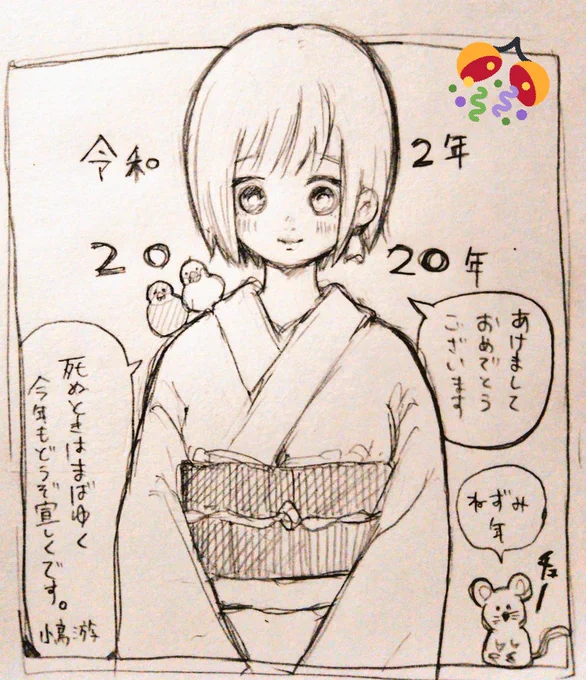 令和 2年
2020年
あけまして
おめでとう
ございます
死ぬときはまばゆく
今年もどうぞ宜しくです。
小鳥游
ねずみ
年
チュー